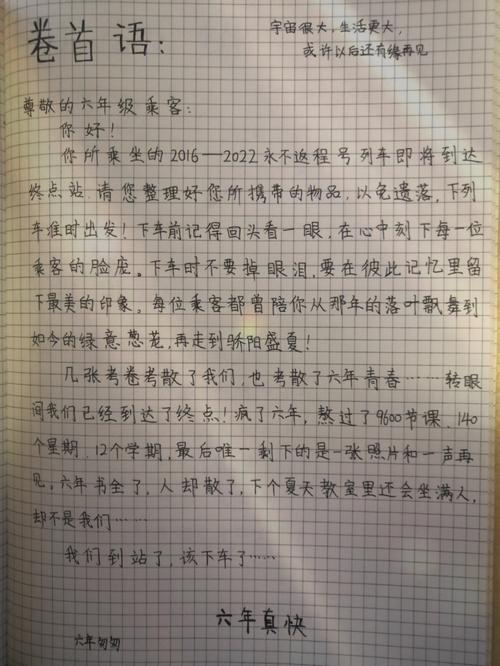 卷首语:
宇宙很大,生活更大,
或许以后还有缘再见
尊敬的六年级乘客:
你好!
你所乘坐的2016—2022永不返程号列车即将到达
终点站.请您整理好您所携带的物品,以免遗落,下列
车准时出发!下车前记得回头看一眼,在心中刻下每一位
乘客的脸庞。下车时不要掉眼泪,要在彼此记忆里留
下最美的印象。每位乘客都曾陪你从那年的落叶飘舞到
如今的绿意葱茏,再走到骄阳盛夏!
几张考卷考散了我们,也考散了六年青春……转眼
间我们已经到达了终点!疯了六年,熬过了9600节课.140
个星期.12个学期,最后唯一剩下的是一张照片和一声再
见,六年书全了,人却散了,下个夏天教室里还会坐满人,
却不是我们……
我们到站了,该下车了……
六年真快
六年匆匆